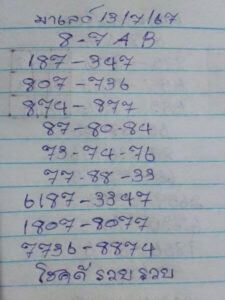 มาเลย์ 13/7/67
8-7 A B
187-347
807-736
874-877
87-80-84
73-74-76
77-88-33
6187-3347
1807-8077
7736-8874
โชคดี รวย รวย